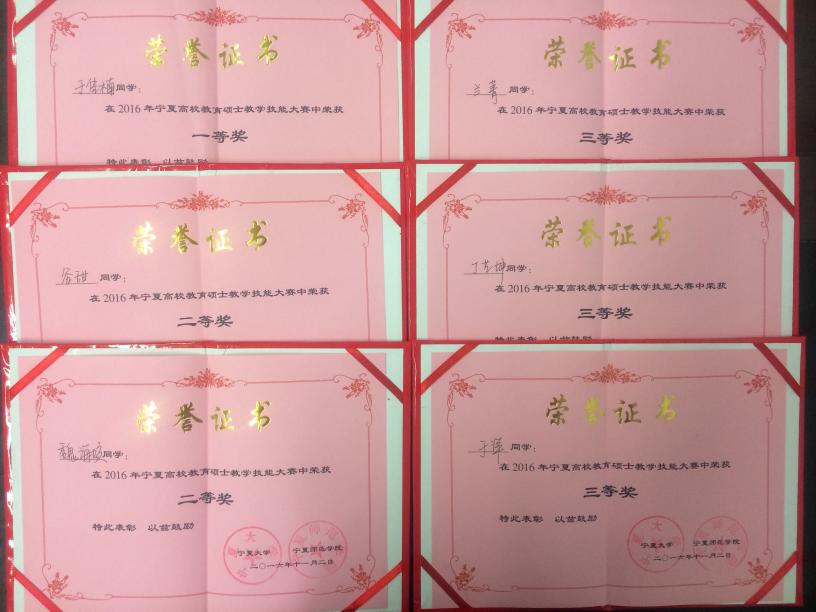 荣誉证书
同学：
在2016年宁夏高校教育硕士教学技能大赛中荣获
一等奖
特此表彰 以兹鼓励
荣誉证书
兰菁 同学：
在2016年宁夏高校教育硕士教学技能大赛中荣获
三等奖
荣誉证书
谷甜 同学：
在2016年宁夏高校教育硕士教学技能大赛中荣获
二等奖
荣誉证书
同学：
在2016年宁夏高校教育硕士教学技能大赛中荣获
三等奖
特此表彰 以兹鼓励
荣誉证书
同学：
在2016年宁夏高校教育硕士教学技能大赛中荣获
二等奖
特此表彰 以兹鼓励
宁夏大学 宁夏师范学院
二〇一六年十一月二日
荣誉证书
同学：
在2016年宁夏高校教育硕士教学技能大赛中荣获
三等奖
特此表彰 以兹鼓励
宁夏大学 宁夏师范学院
二〇一六年十一月二日